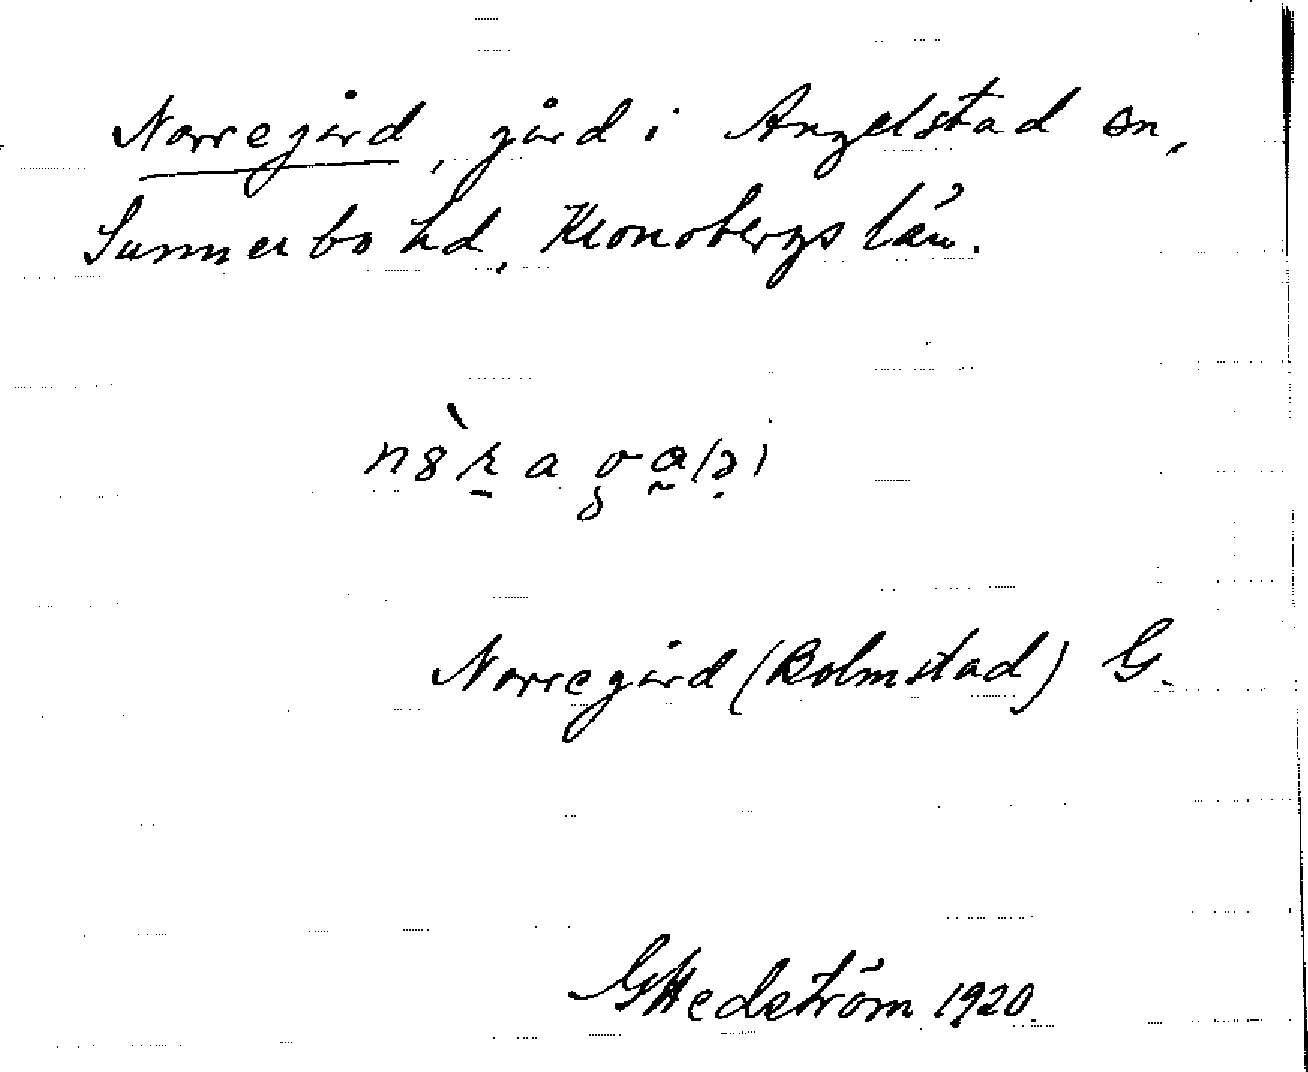 Norregård, gård i Angelstad sn,
Sunnerbo hd, Kronobergs län.
Norregård (Bolmstad) G.
GHedström 1920.